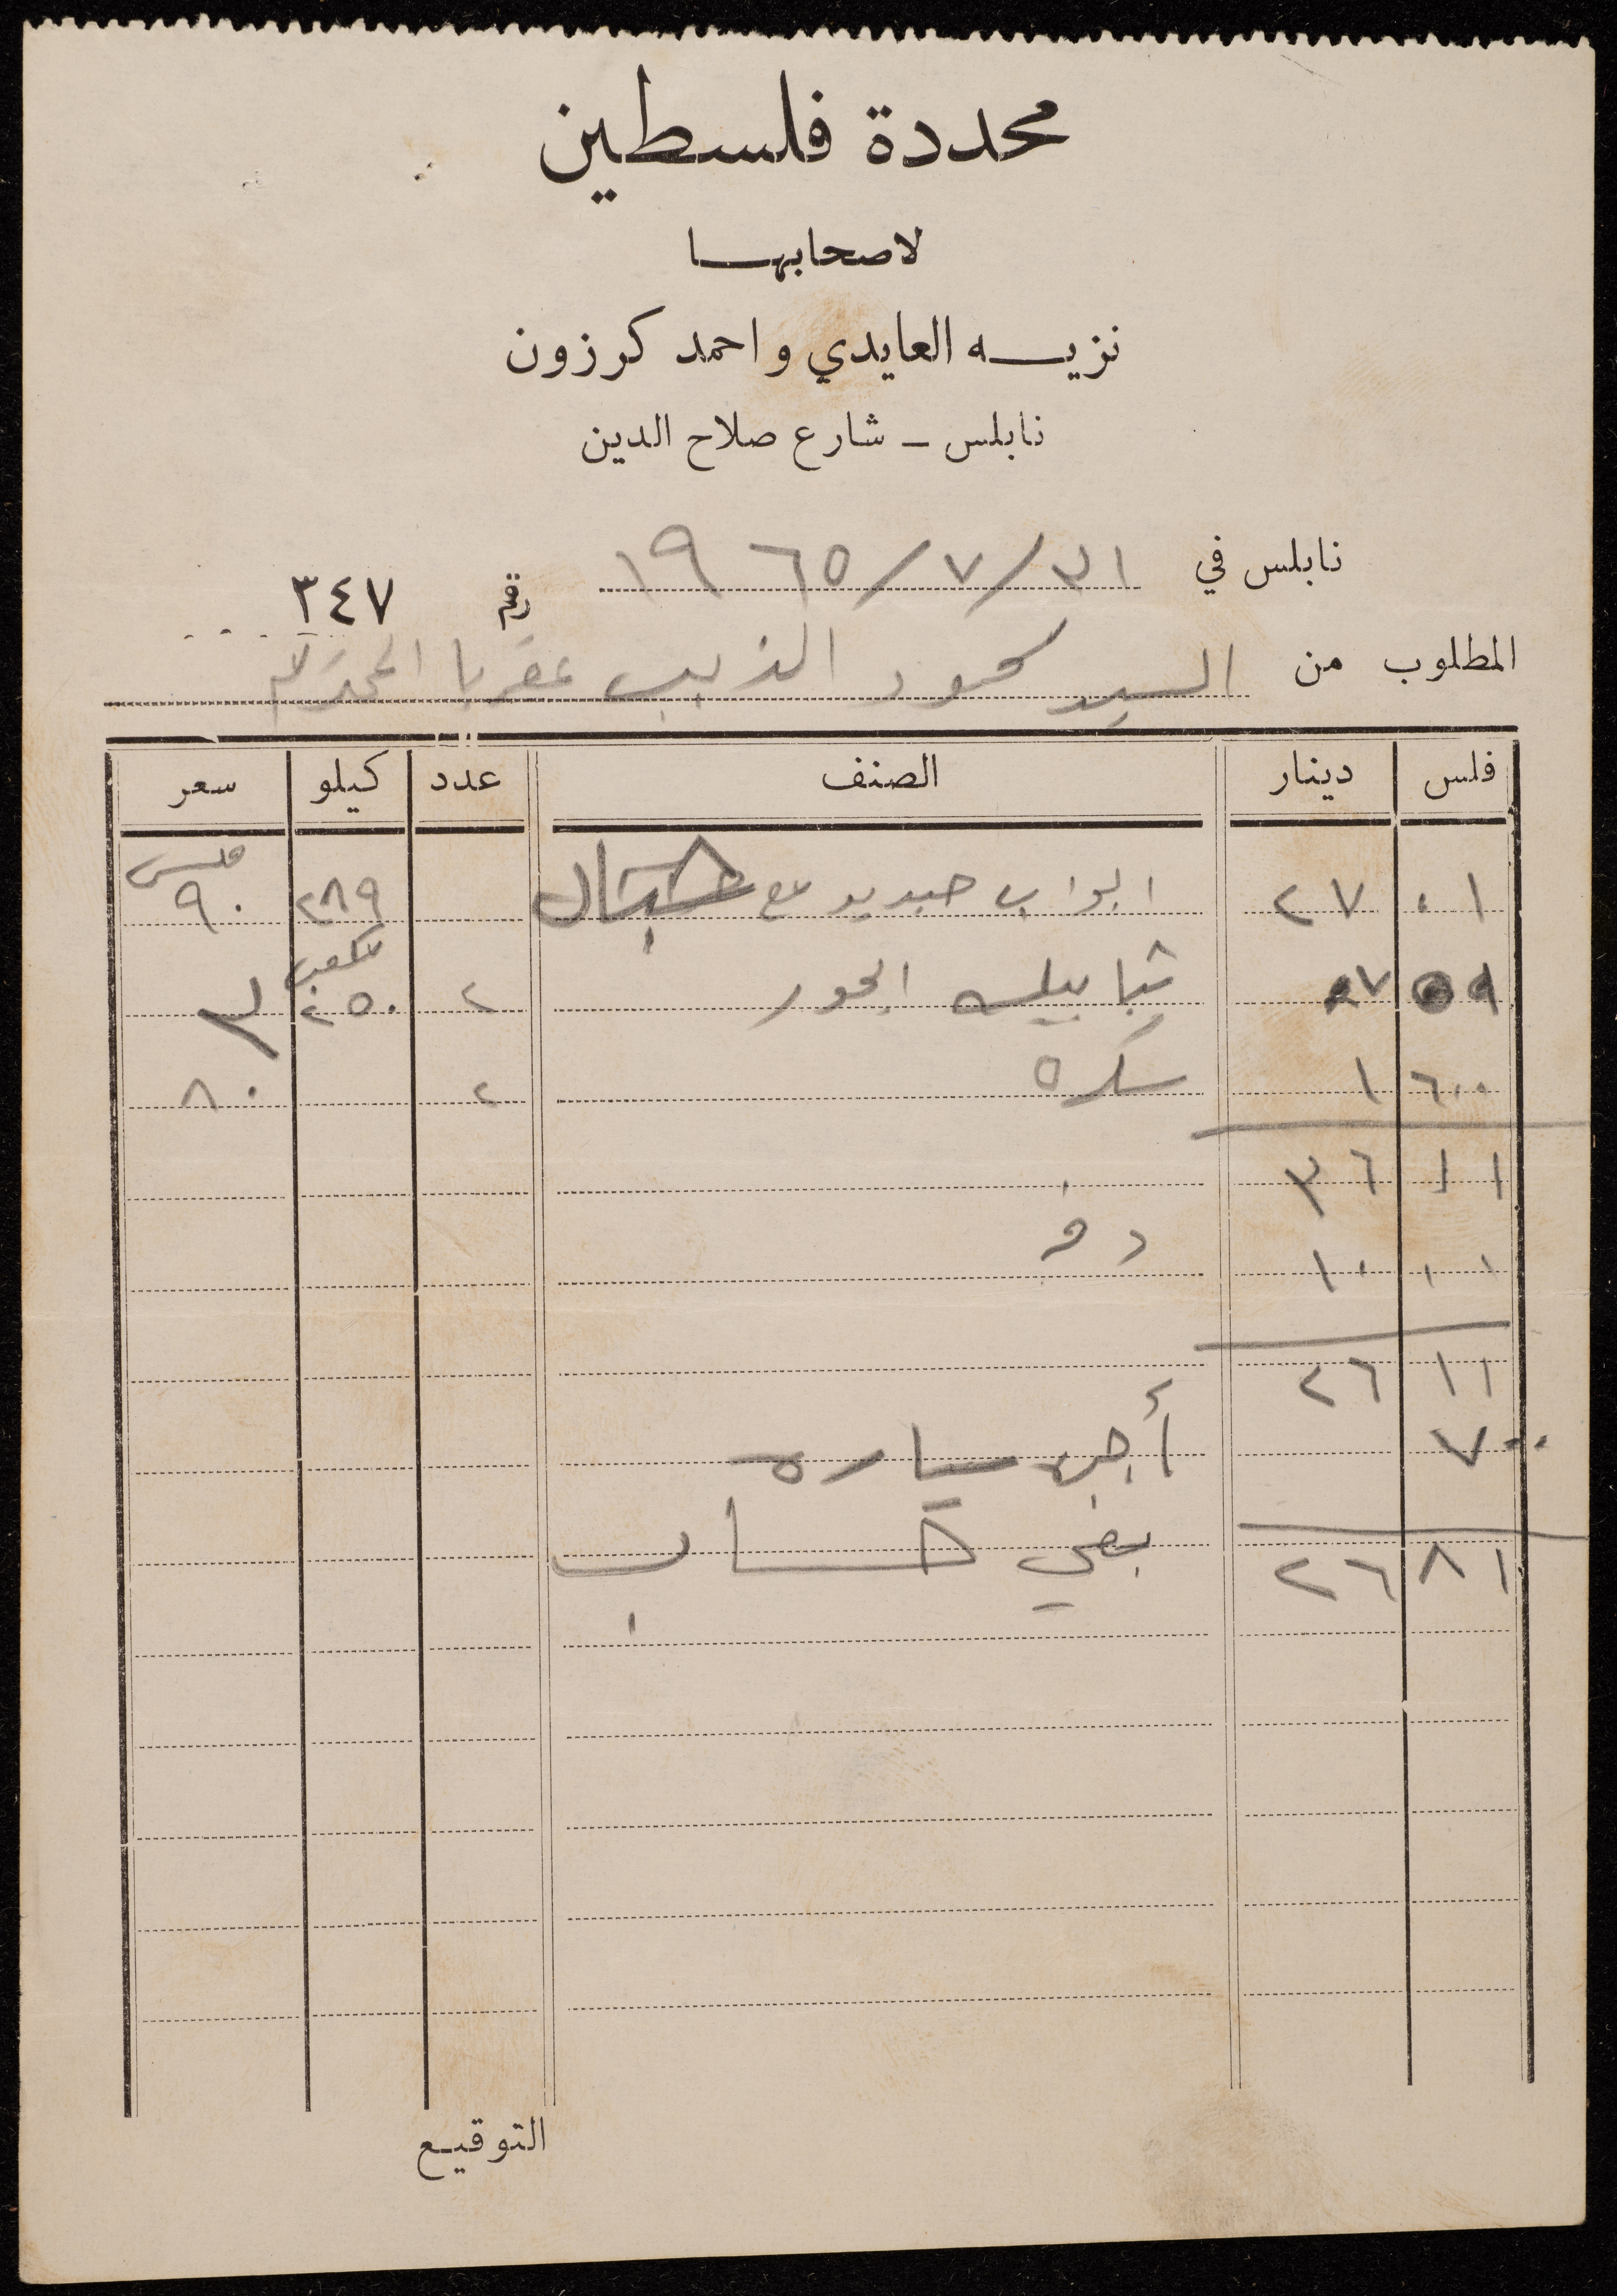 محددة فلسطين
لاصحابها
نزيه العايدي و احمد كرزون
نابلس – شارع صلاح الدين
نابلس في ٣١/٧/٦٥ ١٩ رقم ٣٤٧
المطلوب من السيد محمود الذيب عقربا المحترم
فلس دينار الصنف عدد كيلو سعر
٠١ ٢٧ ابواب حديد مع ٢٨٩ ٩٠ فلس
٧ شبابيك الحور ٢ ٢٥٠ مكعب ٣
٦٠٠ ١ سكره ٢ ٨٠
٦١ ٣٦
٠٠ ١٠ دفع
١١ ٢٦
٧٠٠ أجره سياره
٨١ ٢٦ بقي حساب
التوقيع